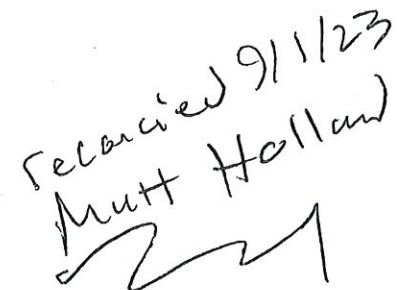 reconciled 9/1/23
Matt Holland